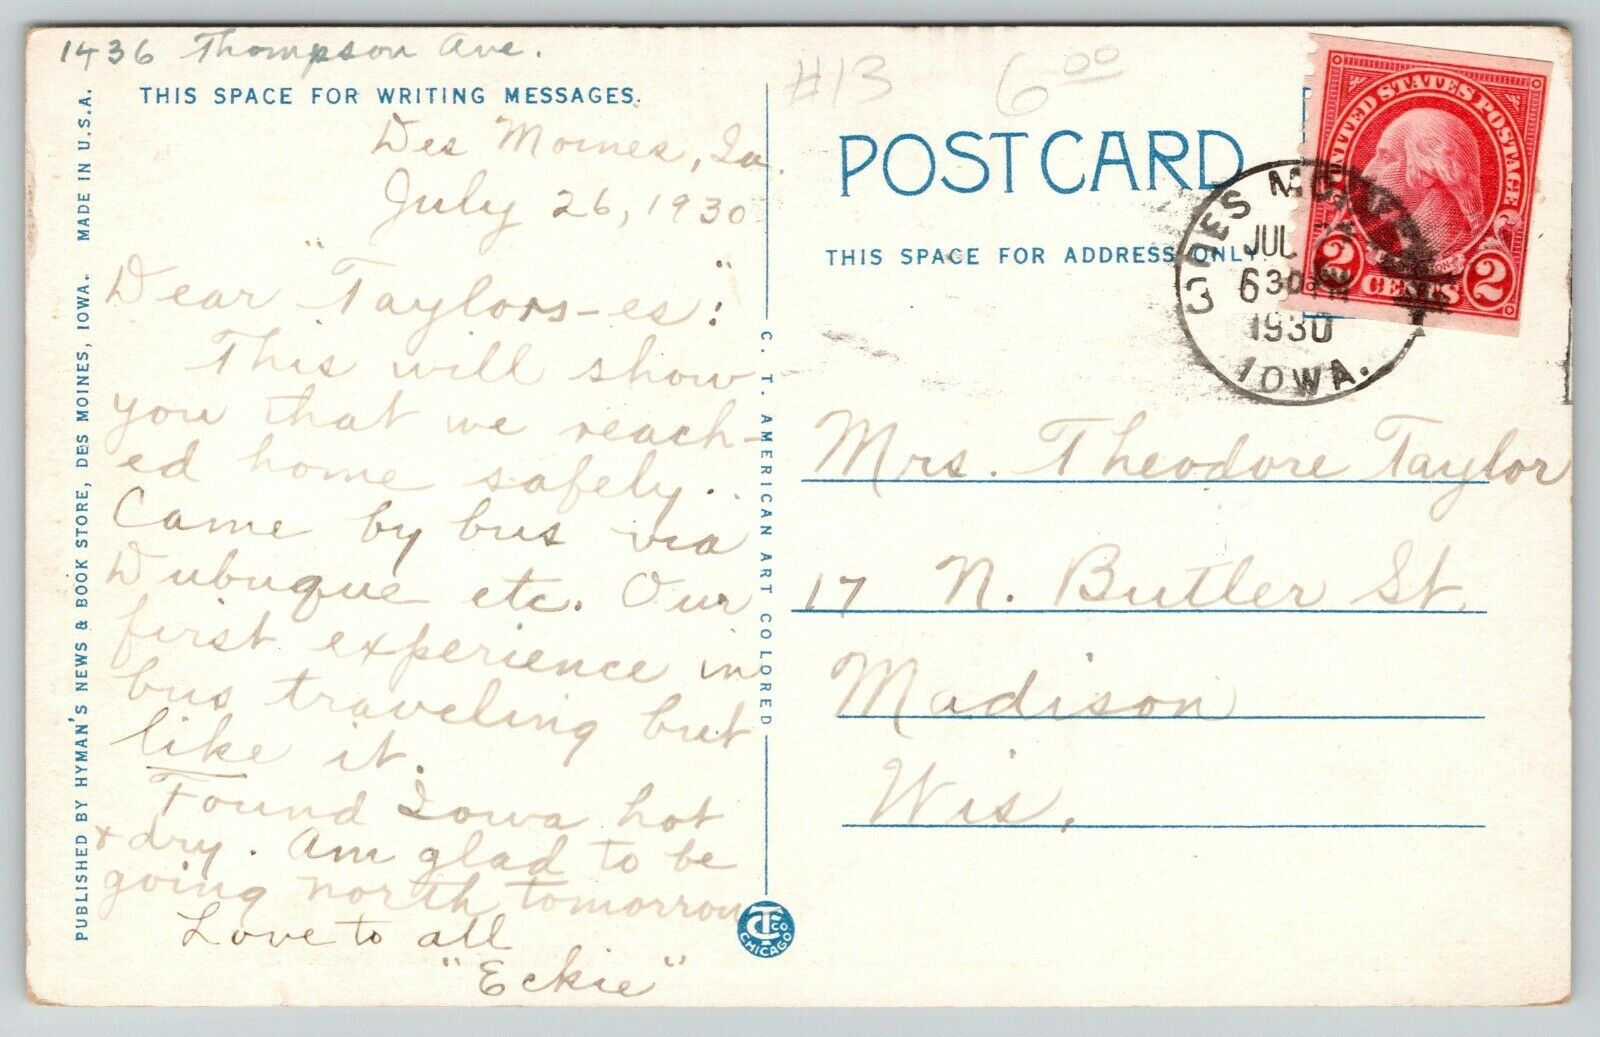 1436 Thompson Ave.
THIS SPACE FOR WRITING MESSAGES.
Des Moines, Ia.
July 26, 1930
Dear "Taylors-es":
This will show
you that we reach-
ed home safely.
Came by bus via
Dubuque etc. Our
first experience in
bus traveling but
like it.
Found Iowa hot
& dry. Am glad to be
going north tomorrow
Love to all
"Eckie"
PUBLISHED BY HYMAN'S NEWS & BOOK STORE, DES MOINES, IOWA. MADE IN U.S.A.
C. T. AMERICAN ART COLORED
CTCO
CHICAGO
#13 6.00
POST CARD
THIS SPACE FOR ADDRESS ONLY.
UNITED STATES POSTAGE
2 CENTS 2
DES MOINES
JUL
630PM
1930
IOWA.
Mrs. Theodore Taylor
17 N. Butler St.
Madison
Wis.